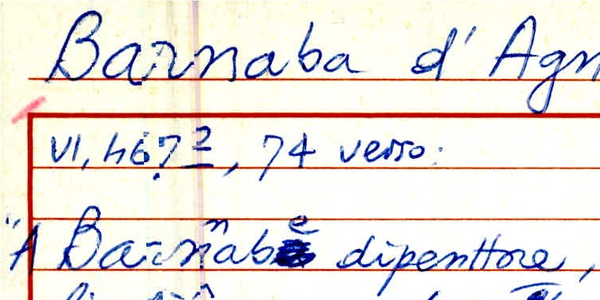 Barnaba d'Agn
VI, 467², 74 verso:
"A Barnabe dipenttore,